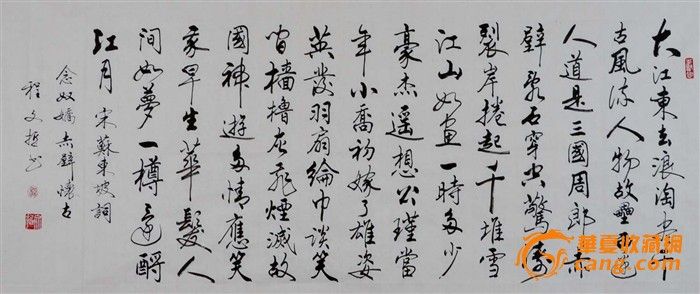 大江東去浪淘盡千
古風流人物故壘西邊
人道是三國周郎赤
壁亂石穿空驚濤
裂岸捲起千堆雪
江山如畫一時多少
豪杰遥想公瑾當
年小喬初嫁了雄姿
英發羽扇綸巾談笑
間檣櫓灰飛煙滅故
國神遊多情應笑
我早生華髮人
間如夢一樽還酹
江月 宋蘇東坡詞
念奴嬌赤壁懷古
程文哲书
華夏收藏網
cang.com